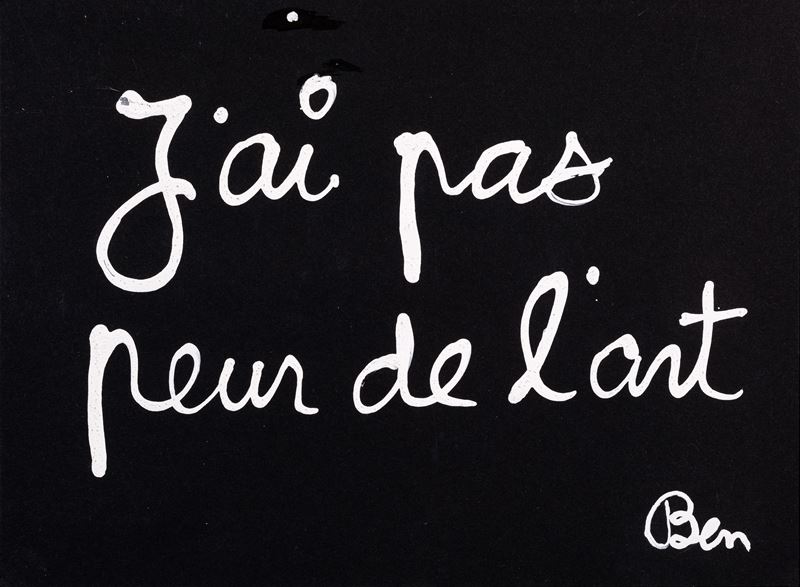 J'ai pas
peur de l'art
Ben